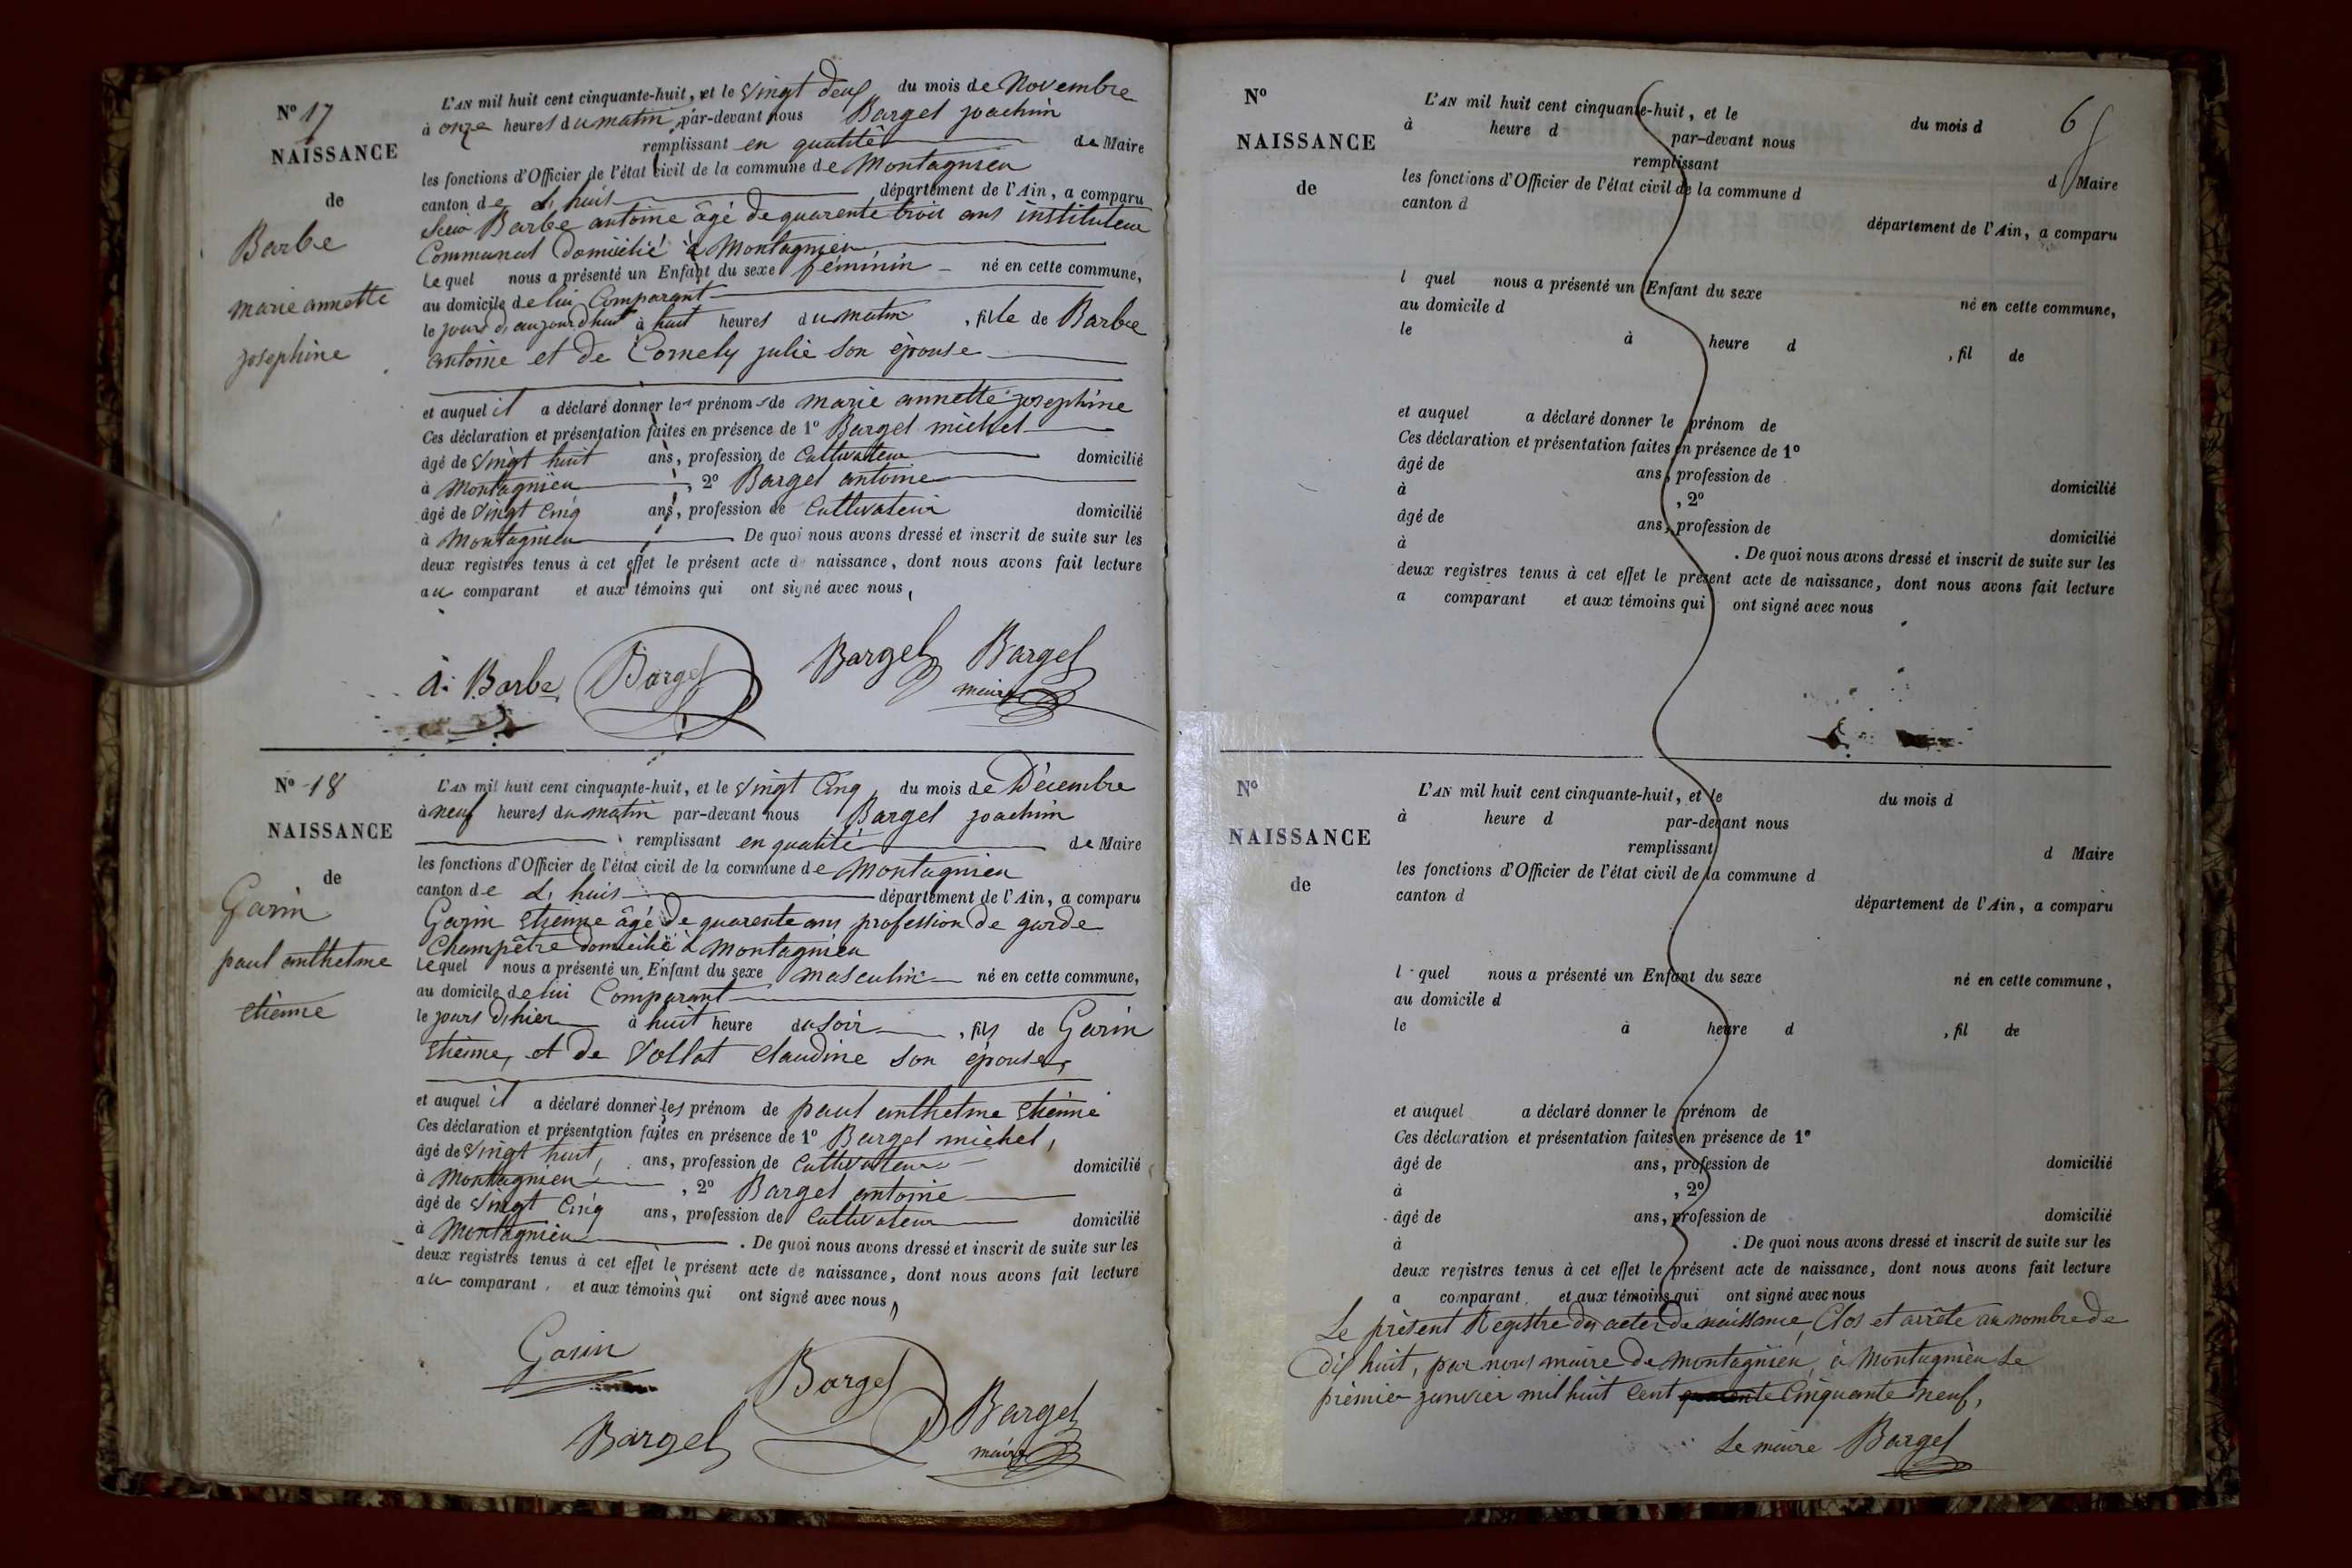 N° 17
NAISSANCE
de
Barbe
marie annette
josephine
L'AN mil huit cent cinquante-huit, et le vingt deux du mois de Novembre
à onze heures du matin par-devant nous Bargel joachim
remplissant en qualité de Maire
les fonctions d'Officier de l'état civil de la commune de Montagnieu
canton de L'huis département de l'Ain, a comparu
Barbe antoine âgé de quarente trois ans instituteur
Communal domicilié à Montagnieu
Lequel nous a présenté un Enfant du sexe féminin né en cette commune,
au domicile de lui Comparant
le jours d'aujourdhui à huit heures du matin , fille de Barbe
antoine et de Cornely julie son épouse
et auquel il a déclaré donner les prénoms de marie annette josephine
Ces déclaration et présentation faites en présence de 1° Bargel michel
âgé de vingt huit ans, profession de Cultivateur domicilié
à Montagnieu , 2° Bargel antoine
âgé de vingt Cinq ans, profession de Cultivateur domicilié
à Montagnieu De quoi nous avons dressé et inscrit de suite sur les
deux registres tenus à cet effet le présent acte de naissance, dont nous avons fait lecture
au comparant et aux témoins qui ont signé avec nous,
A. Barbe Bargel Bargel Bargel
maire
N° 18
NAISSANCE
de
Garin
paul anthelme
etienne
L'AN mil huit cent cinquante-huit, et le vingt Cinq du mois de Décembre
à neuf heures du matin par-devant nous Bargel joachim
remplissant en qualité de Maire
les fonctions d'Officier de l'état civil de la commune de Montagnieu
canton de L'huis département de l'Ain, a comparu
Garin etienne âgé de quarente ans profession de garde
Champêtre domicilié à Montagnieu
Lequel nous a présenté un Enfant du sexe masculin né en cette commune,
au domicile de lui Comparant
le jours d'hier à huit heure du soir , fils de Garin
etienne, et de Vollat Claudine son épouse,
et auquel il a déclaré donner les prénom de paul anthelme etienne
Ces déclaration et présentation faites en présence de 1° Bargel michel,
âgé de vingt huit, ans, profession de Cultivateur domicilié
à Montagnieu , 2° Bargel antoine
âgé de vingt Cinq ans, profession de Cultivateur domicilié
à Montagnieu . De quoi nous avons dressé et inscrit de suite sur les
deux registres tenus à cet effet le présent acte de naissance, dont nous avons fait lecture
au comparant, et aux témoins qui ont signé avec nous,
Garin
Bargel Bargel Bargel
maire
6
N°
NAISSANCE
de
L'AN mil huit cent cinquante-huit, et le du mois d
à heure d par-devant nous
remplissant d Maire
les fonctions d'Officier de l'état civil de la commune d
canton d département de l'Ain, a comparu
l quel nous a présenté un Enfant du sexe né en cette commune,
au domicile d
le à heure d , fil de
et auquel a déclaré donner le prénom de
Ces déclaration et présentation faites en présence de 1°
âgé de ans, profession de domicilié
à , 2°
âgé de ans, profession de domicilié
à . De quoi nous avons dressé et inscrit de suite sur les
deux registres tenus à cet effet le présent acte de naissance, dont nous avons fait lecture
a comparant et aux témoins qui ont signé avec nous
N°
NAISSANCE
de
L'AN mil huit cent cinquante-huit, et le du mois d
à heure d par-devant nous
remplissant d Maire
les fonctions d'Officier de l'état civil de la commune d
canton d département de l'Ain, a comparu
l quel nous a présenté un Enfant du sexe né en cette commune,
au domicile d
le à heure d , fil de
et auquel a déclaré donner le prénom de
Ces déclaration et présentation faites en présence de 1°
âgé de ans, profession de domicilié
à , 2°
âgé de ans, profession de domicilié
à . De quoi nous avons dressé et inscrit de suite sur les
deux registres tenus à cet effet le présent acte de naissance, dont nous avons fait lecture
a comparant et aux témoins qui ont signé avec nous
Le présent Registre des actes de naissance, Clos et arrête au nombre de
dix huit, par nous maire de Montagnieu, à Montagnieu le
prémier janvier mil huit Cent quarente Cinquante neuf,
Le maire Bargel